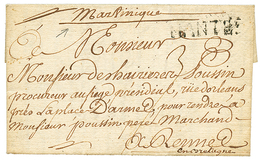 Martinique
NANTES
A Monsieur
Monsieur
procureur au siege presidial, rue dorleans
près La place D'armes, pour rendre a
Monsieur poussin neveu Marchand
a Rennes
en bretagne